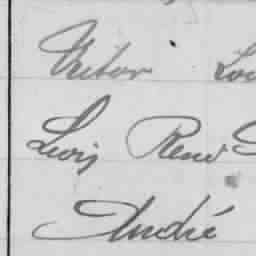 Victor Lou
Louis René
André